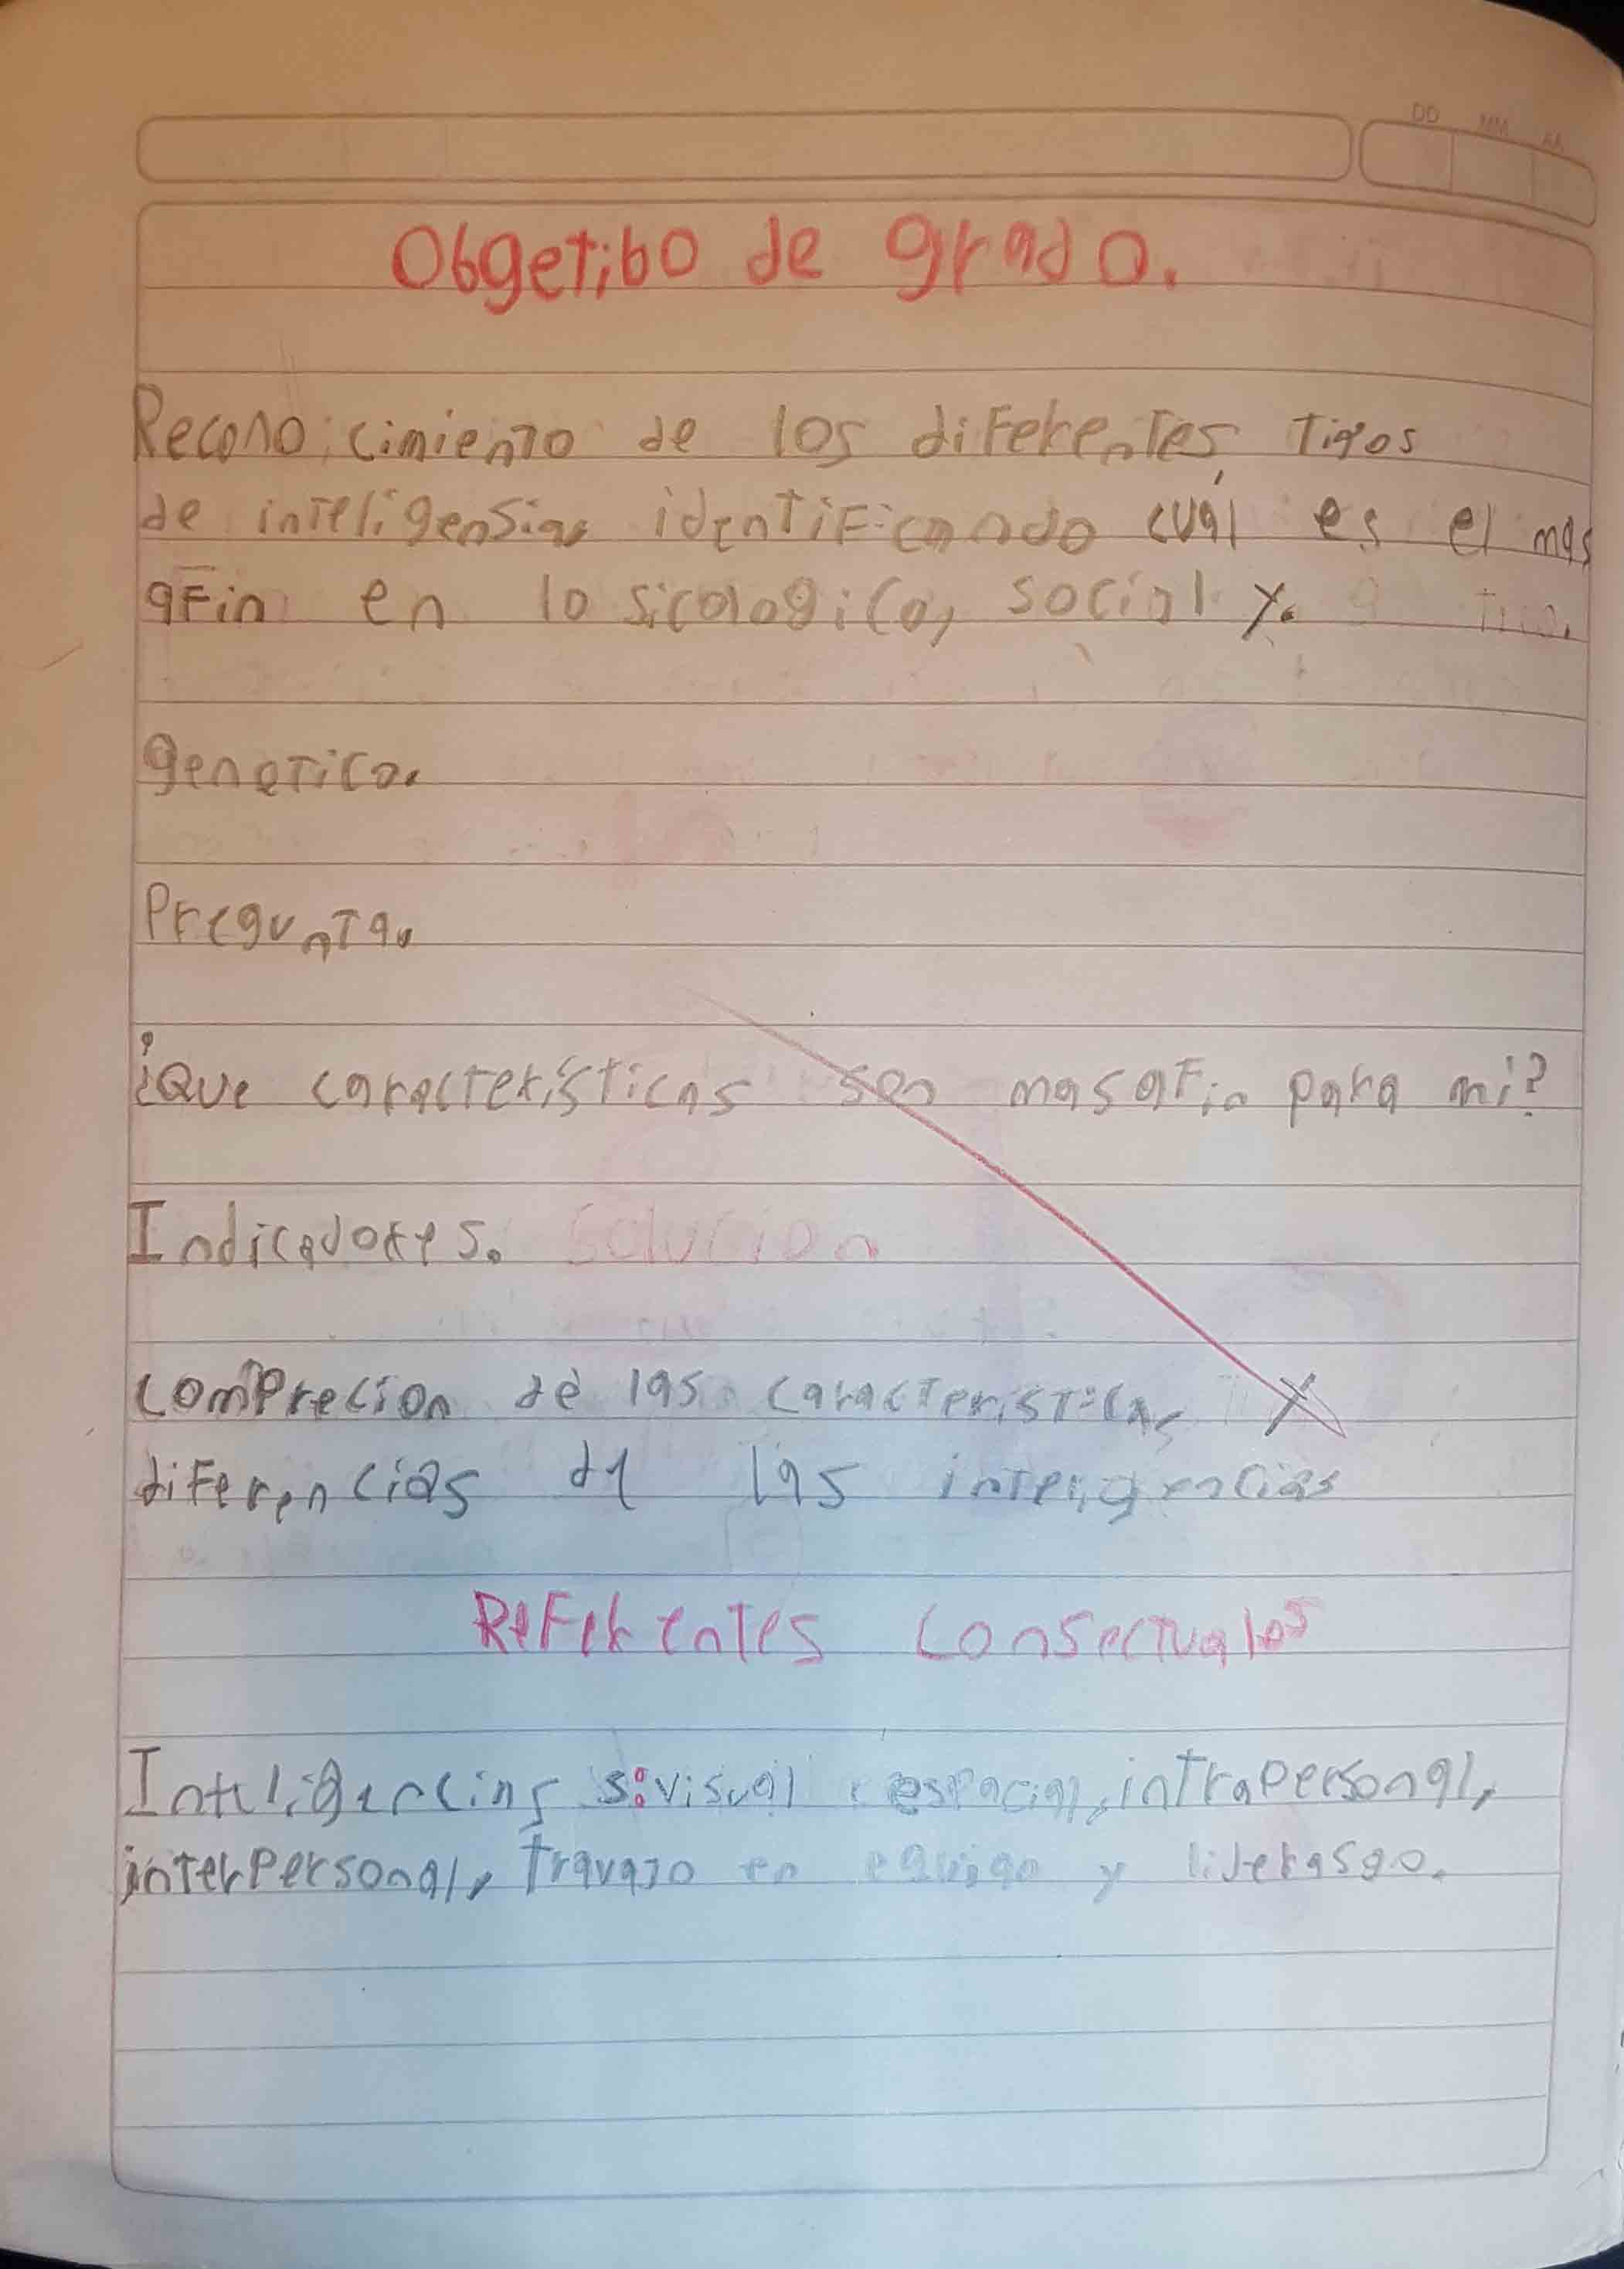 Obgetibo de grado.
Reconocimiento de los diferentes tipos
de inteligensias identificando cuál es el mas
afin en lo sicologico, social y.
genetico.
Pregunta.
¿Que características son mas afin para mi?
Indicadores. Solucion
comprecion de las caracteristicas y
diferencias de las inteligencias
Referentes consectuales
Inteligencias s:visual espacial, intrapersonal,
interpersonal, travajo en equipo y liderasgo.